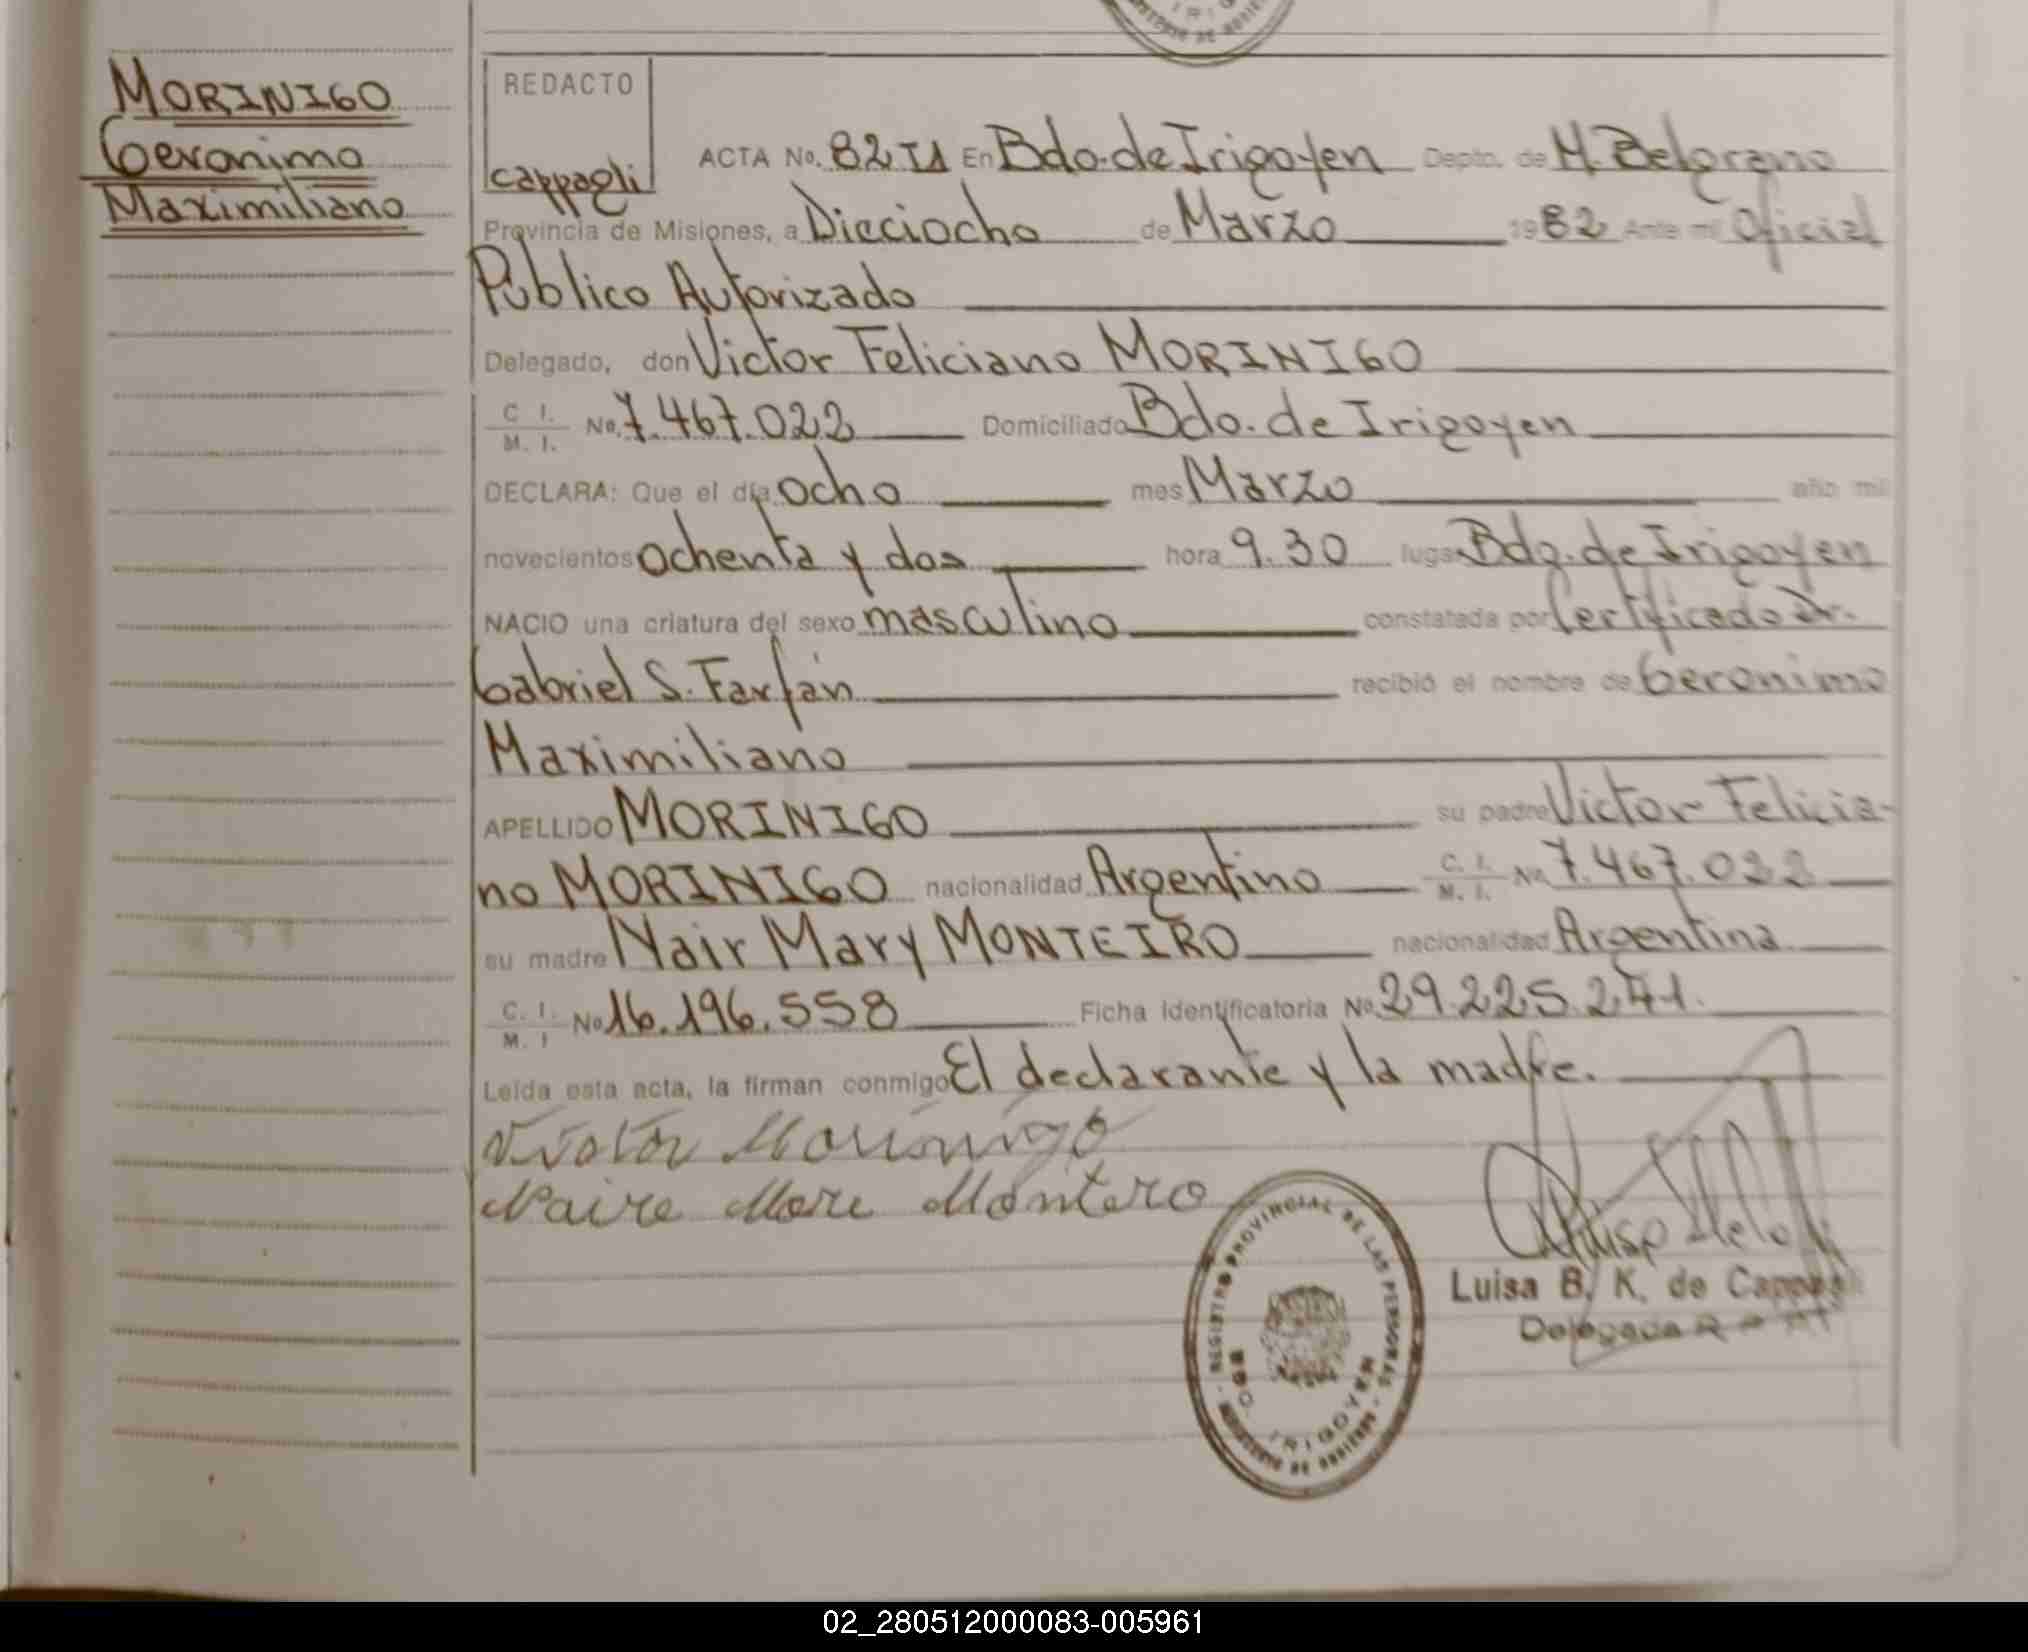 MORINIGO
Geronimo
Maximiliano
REDACTO
cappagli
ACTA No. 82 T1 En Bdo. de Irigoyen Depto. de M. Belgrano
Provincia de Misiones, a Dieciocho de Marzo 1982 Ante mi Oficial
Público Autorizado
Delegado, don Victor Feliciano MORINIGO
C. I. M. I. No. 7.467.022 Domiciliado Bdo. de Irigoyen
DECLARA: Que el día ocho mes Marzo año mil
novecientos ochenta y dos hora 9.30 lugar Bdo. de Irigoyen
NACIO una criatura del sexo masculino constatada por Certificado Dr.
Gabriel S. Farfán recibió el nombre de Geronimo
Maximiliano
APELLIDO MORINIGO su padre Victor Felicia-
no MORINIGO nacionalidad Argentino C. I. M. I. No. 7.467.022
su madre Nair Mary MONTEIRO nacionalidad Argentina
C. I. M. I No 16.196.558 Ficha identificatoria No. 29.225.241.
Leída esta acta, la firman conmigo El declarante y la madre.
Victor Morinigo
Naire Mere Montero
REGISTRO PROVINCIAL DE LAS PERSONAS
BDO. IRIGOYEN
MINISTERIO DE GOBIERNO
Luisa B. K. de Cappagli
Delegada
02_280512000083-005961